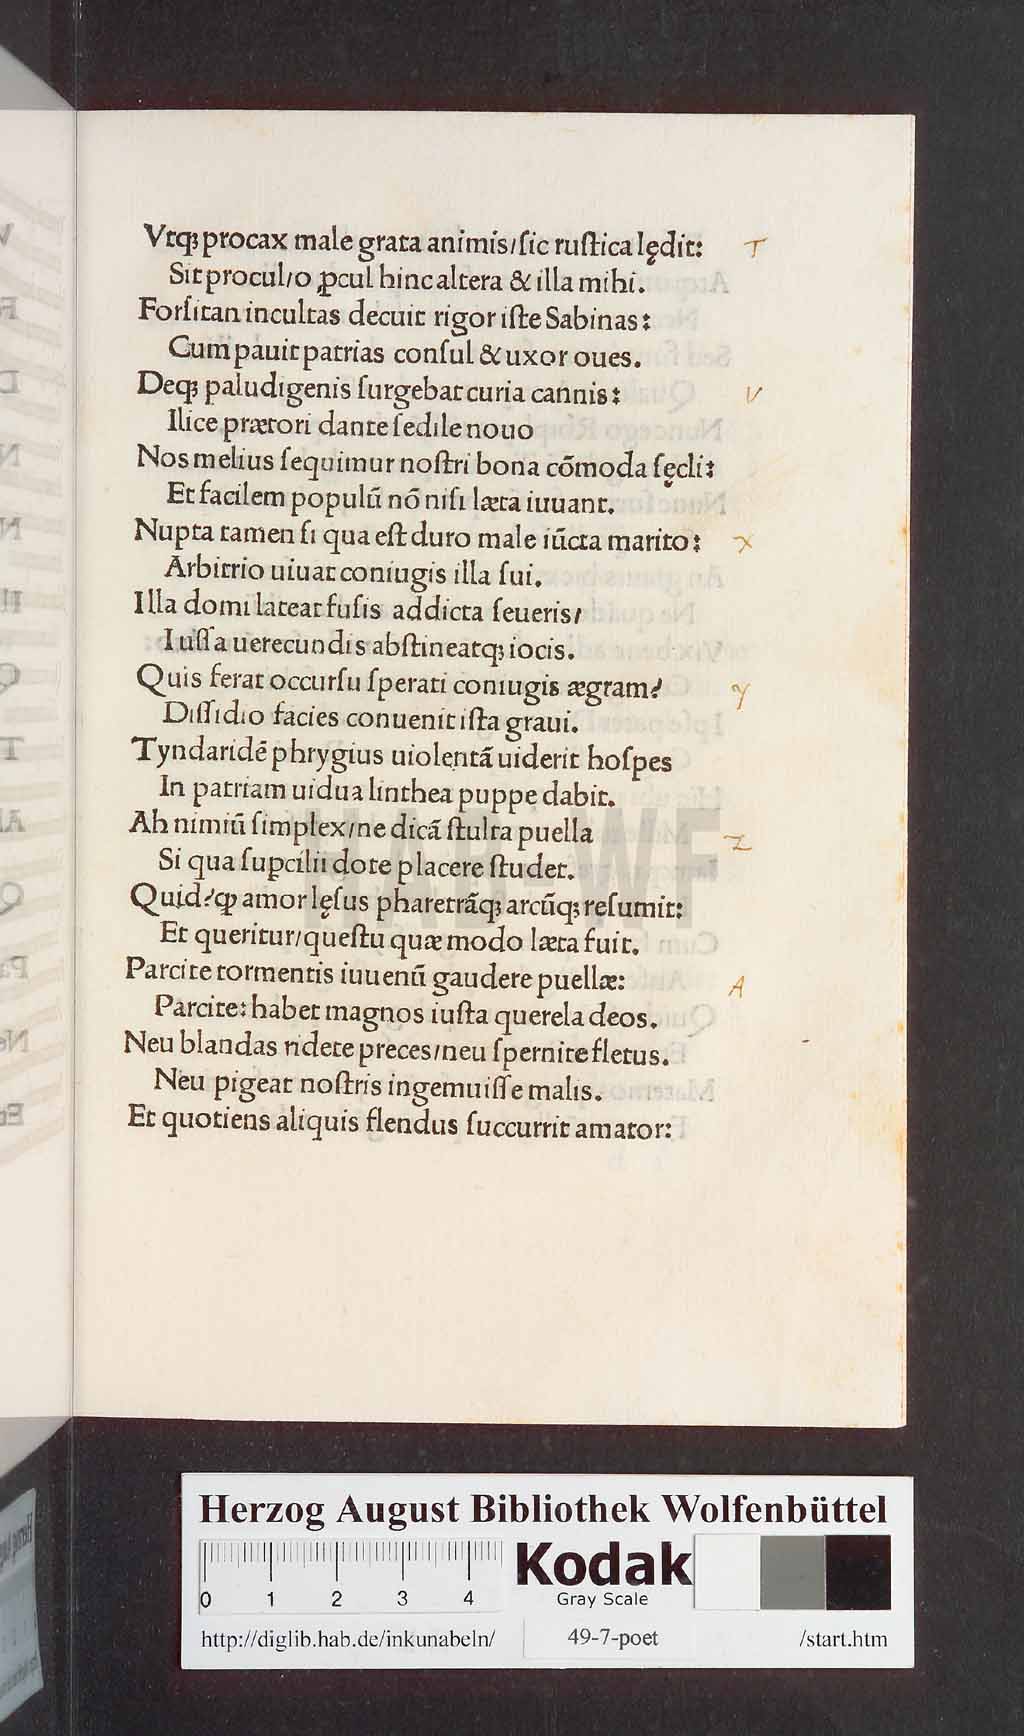 Vtqꝫ procax male grata animis/ſic ruſtica lędit: T
Sit procul/o ꝓcul hinc altera & illa mihi.
Forſitan incultas decuit rigor iſte Sabinas:
Cum pauit patrias conſul & uxor oues.
Deqꝫ paludigenis ſurgebat curia cannis: V
Ilice prætori dante ſedile nouo
Nos melius ſequimur noſtri bona cōmoda ſęcli:
Et facilem populū nō niſi læta iuuant.
Nupta tamen ſi qua eſt duro male iūcta marito: X
Arbitrio uiuat coniugis illa ſui.
Illa domi lateat fuſis addicta ſeueris/
Iuſſa uerecundis abſtineatqꝫ iocis.
Quis ferat occurſu ſperati coniugis ægram? y
Diſſidio facies conuenit iſta graui.
Tyndaridē phrygius uiolentā uiderit hoſpes
In patriam uidua linthea puppe dabit.
Ah nimiū ſimplex/ne dicā ſtulta puella Z
Si qua ſuꝑcilii dote placere ſtudet.
Quid?ꝙ amor lęſus pharetrāqꝫ arcūqꝫ reſumit:
Et queritur/queſtu quæ modo læta fuit.
Parcite tormentis iuuenū gaudere puellæ: A
Parcite: habet magnos iuſta querela deos.
Neu blandas ridete preces/neu ſpernite fletus.
Neu pigeat noſtris ingemuiſſe malis.
Et quotiens aliquis flendus ſuccurrit amator:
HAB-WF
Herzog August Bibliothek Wolfenbüttel
0 1 2 3 4
Kodak
Gray Scale
http://diglib.hab.de/inkunabeln/ 49-7-poet /start.htm